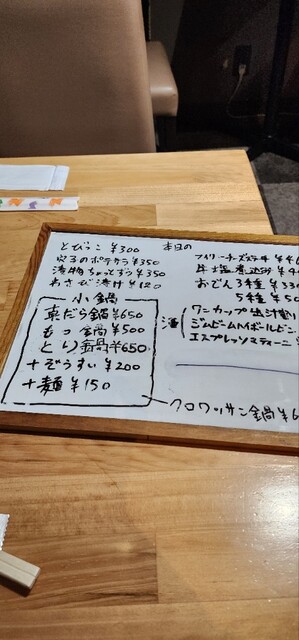 とびっこ ¥300
戻るのポテサラ ¥350
漬物ちょっとずつ ¥350
わさび漬け ¥120
小鍋
真だら鍋 ¥650
もつ鍋 ¥500
とり鍋 ¥650
+ぞうすい ¥200
+麺 ¥150
本日の
フィリーチーズステーキ ¥4
牛塩煮込み ¥4
おでん3種 ¥33
5種 ¥50
酒
ワンカップ出汁割り
ジムビームハイボールビン
エスプレッソマティーニ
クロワッサン鍋 ¥6